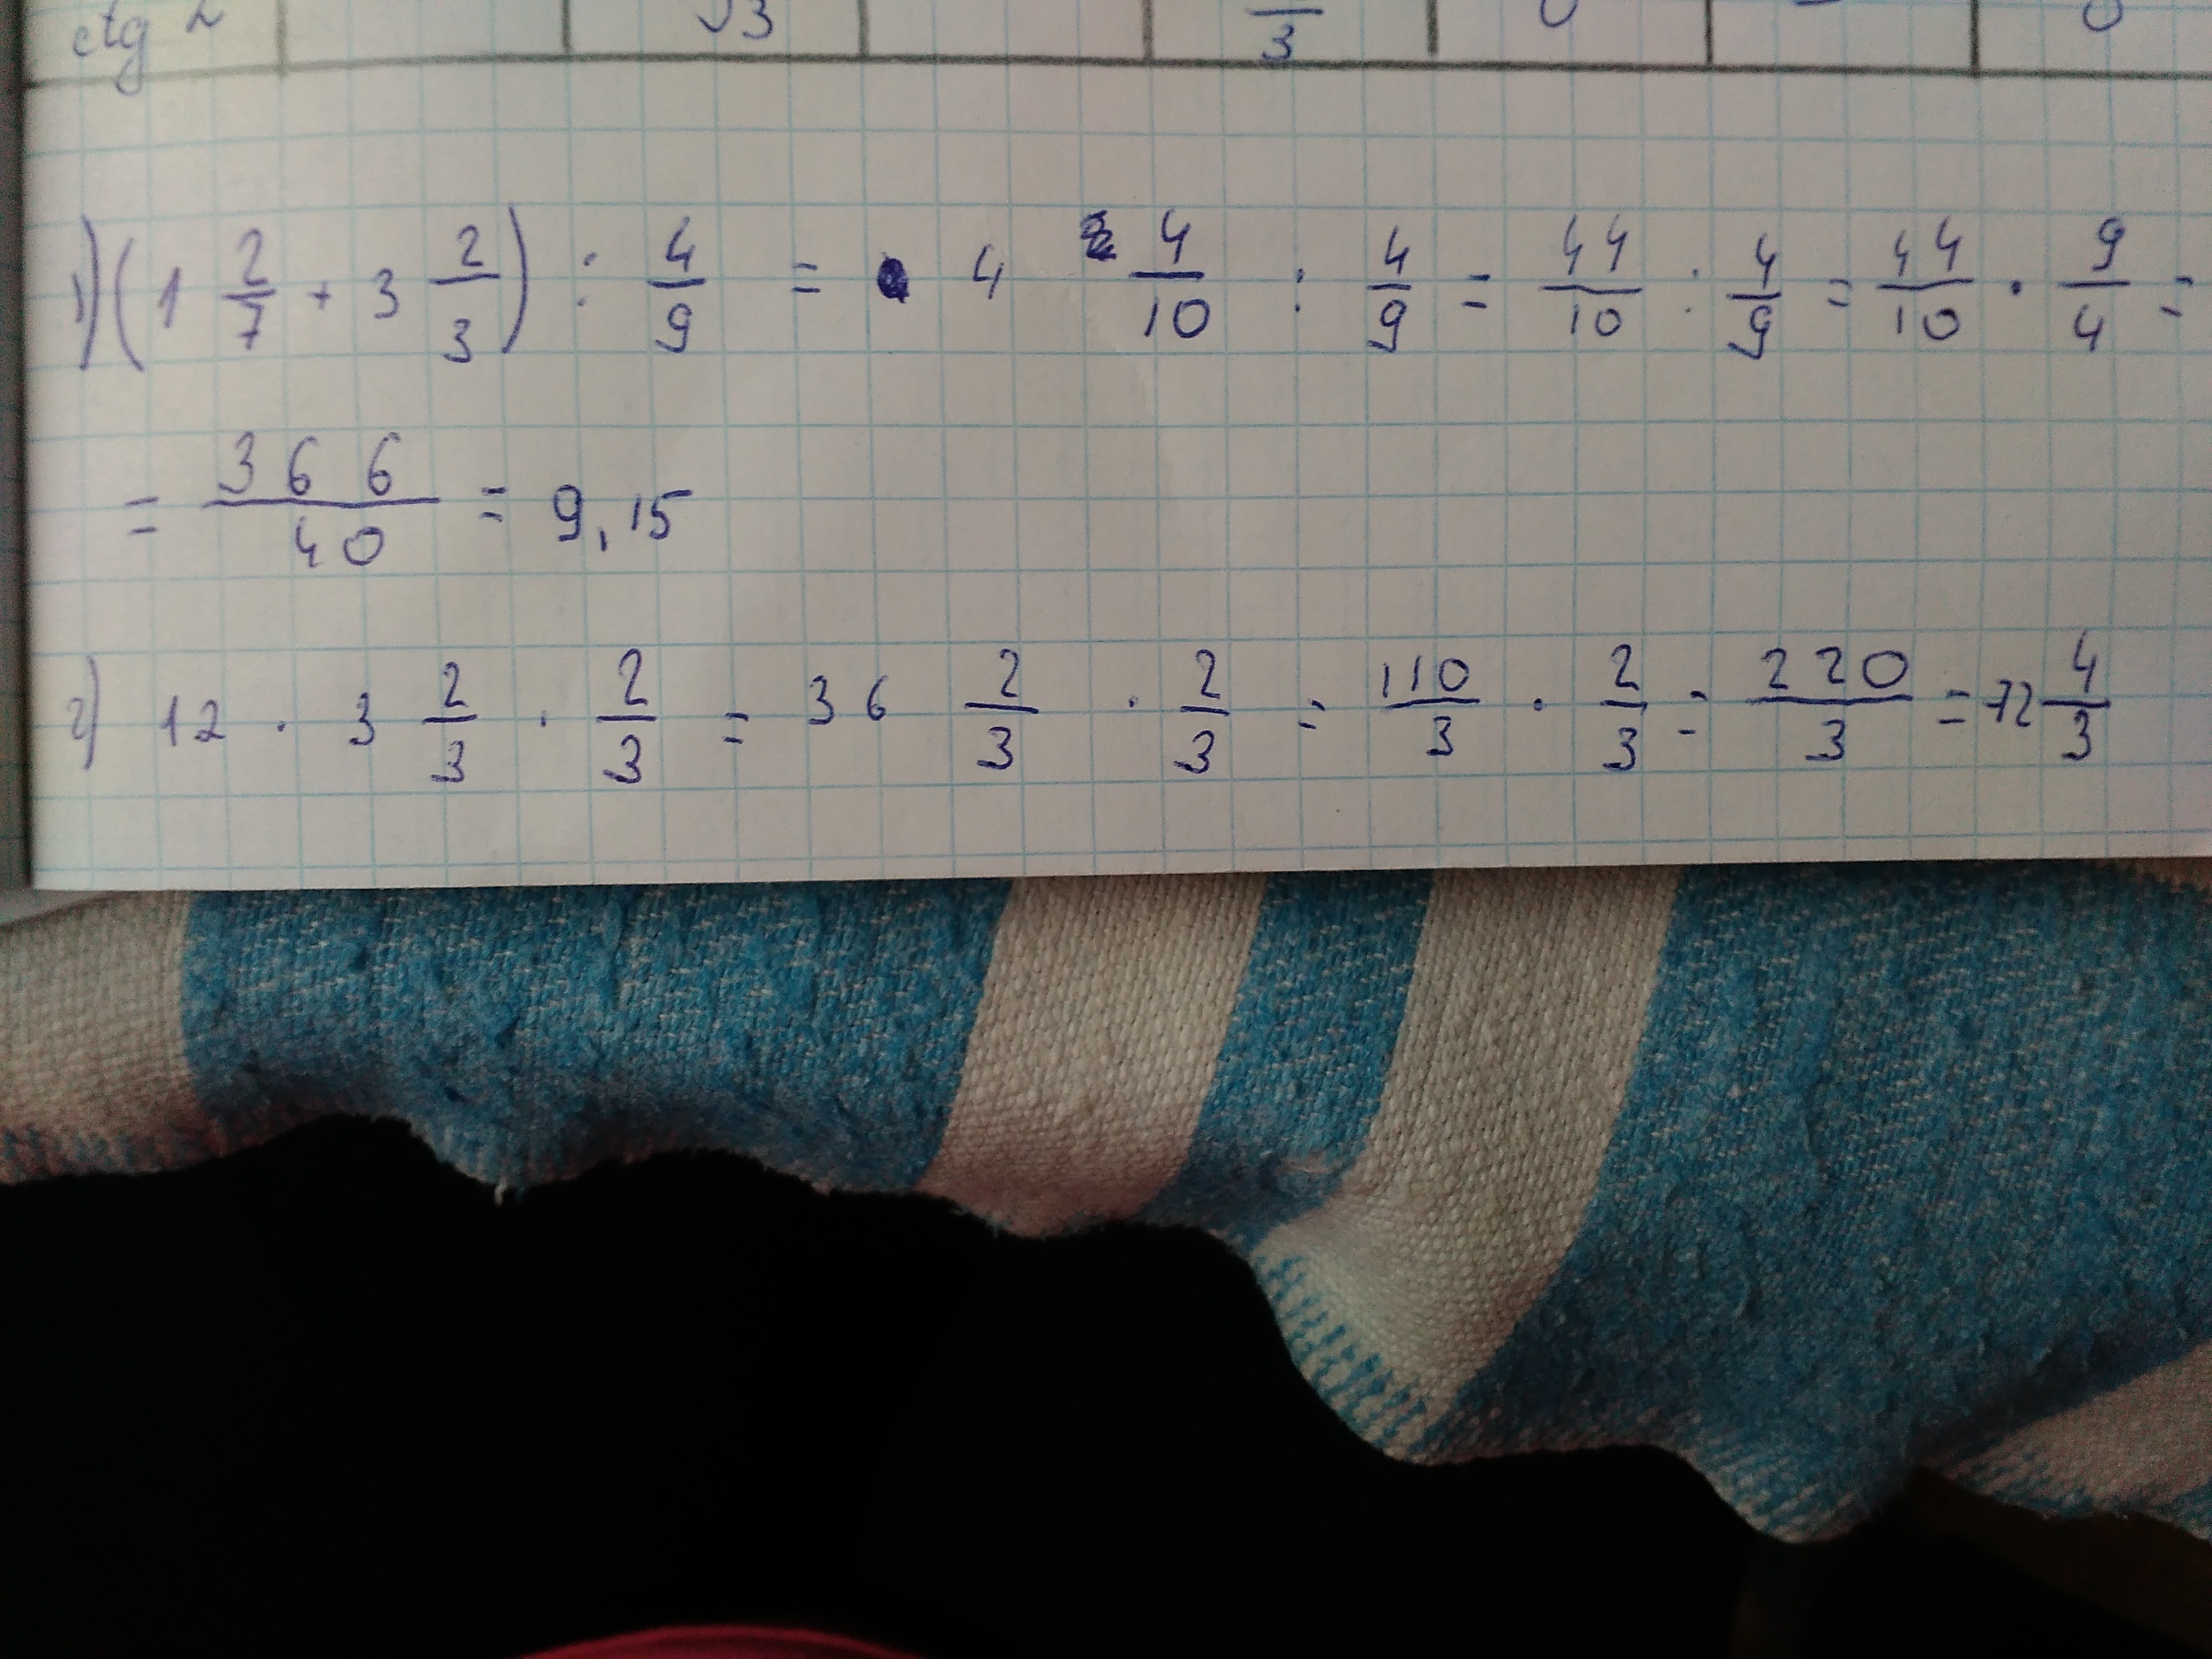 ctg α √3 3 0 – 0
1) (1 2/7 + 3 2/3) : 4/9 = 4 4/10 : 4/9 = 44/10 : 4/9 = 44/10 · 9/4 =
= 366/40 = 9,15
2) 12 · 3 2/3 · 2/3 = 36 2/3 · 2/3 = 110/3 · 2/3 = 220/3 = 72 4/3